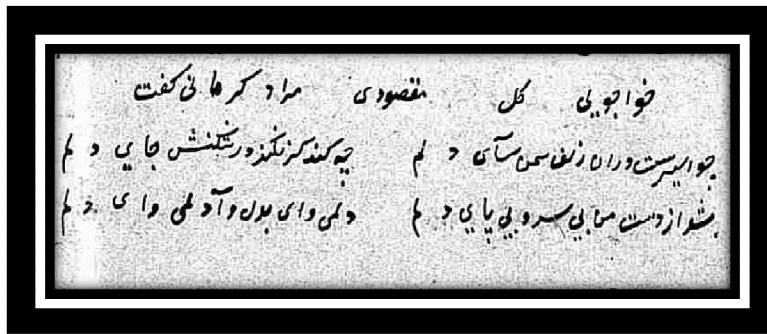 خواجویی گل مقصودی مراد کرمانی گفت
چو اسیرست در ان زلف سمن سآی دلم چه کند کز نکند در شکنش جای دلم
بشد از دست من بی سر و بی پای دلم دلمی وای دلمی وای دلم